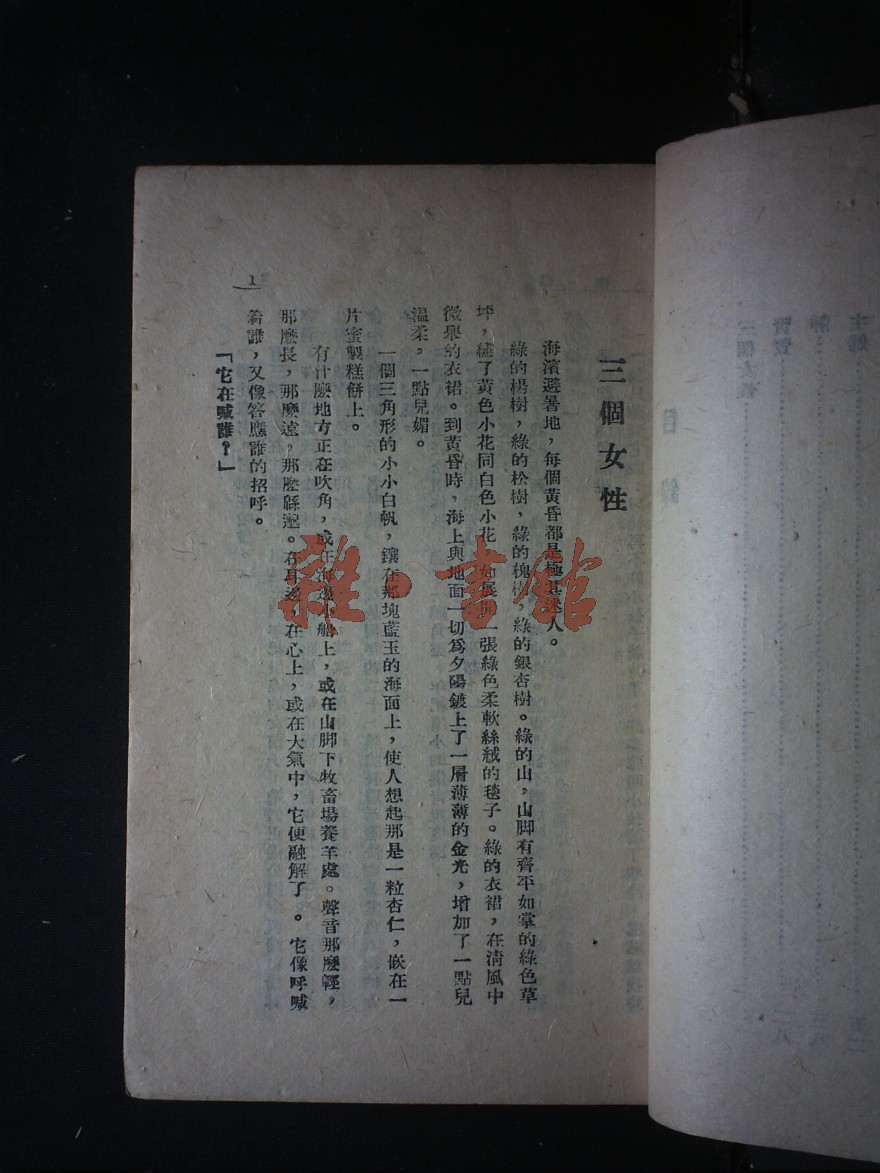 三個女性
海濱避暑地，每個黃昏都是極其迷人。
綠的楊樹，綠的松樹，綠的槐樹，綠的銀杏樹。綠的山，山脚有齊平如掌的綠色草
坪，繡了黃色小花同白色小花，如展開一張綠色柔軟絲絨的毯子。綠的衣裙，在清風中
微舉的衣裙。到黃昏時，海上與地面一切爲夕陽鍍上了一層薄薄的金光，增加了一點兒
溫柔，一點兒媚。
一個三角形的小小白帆，鑲在那塊藍玉的海面上，使人想起那是一粒杏仁，嵌在一
片蜜製糕餅上。
有什麼地方正在吹角，或在海邊小船上，或在山脚下牧畜場養羊處。聲音那麼輕，
那麼長，那麼遠，那麼緜邈。在耳邊，在心上，或在大氣中，它便融解了。它像呼喊
着誰，又像答應誰的招呼。
「它在喊誰？」
1
雜·書館
三個女性